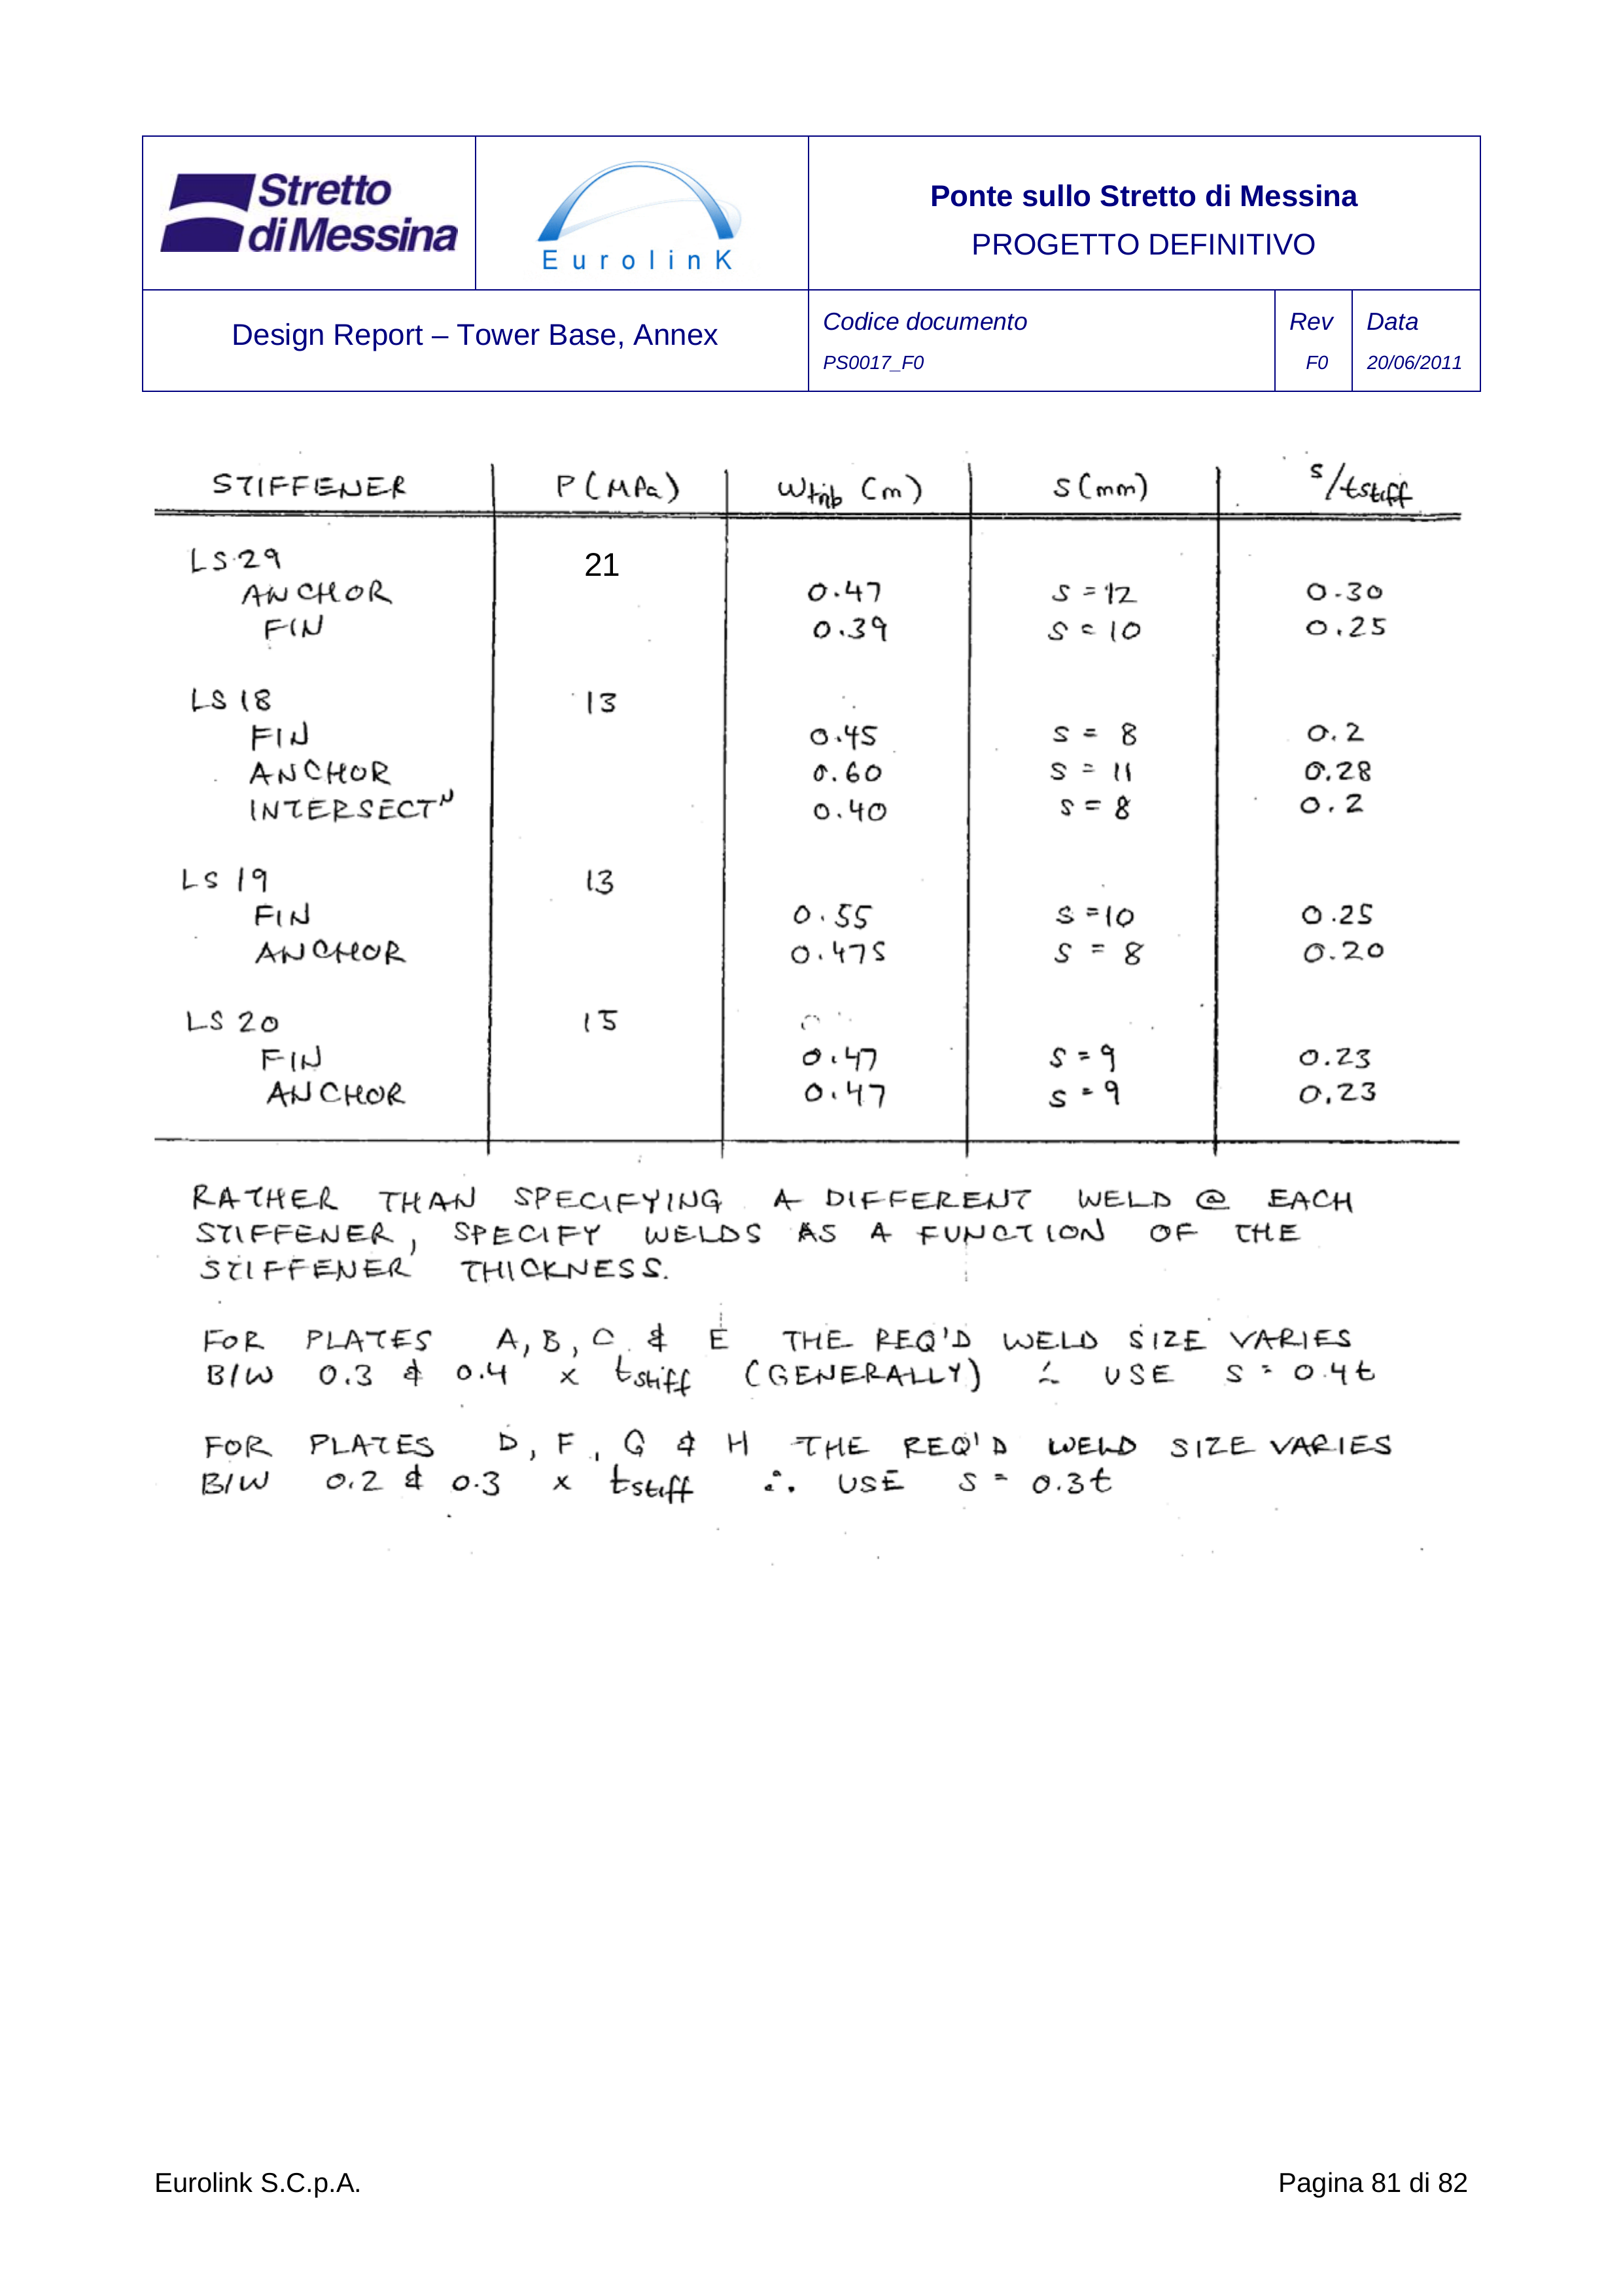 Stretto
di Messina
EurolinK
Ponte sullo Stretto di Messina
PROGETTO DEFINITIVO
Design Report – Tower Base, Annex
Codice documento
PS0017_F0
Rev
F0
Data
20/06/2011
STIFFENER P (MPa) Wtrib (m) S (mm) S/tstiff
LS 29 21
ANCHOR 0.47 S = 12 0.30
FIN 0.39 S = 10 0.25
LS 18 13
FIN 0.45 S = 8 0.2
ANCHOR 0.60 S = 11 0.28
INTERSECTᴺ 0.40 S = 8 0.2
LS 19 13
FIN 0.55 S = 10 0.25
ANCHOR 0.475 S = 8 0.20
LS 20 15
FIN 0.47 S = 9 0.23
ANCHOR 0.47 S = 9 0.23
RATHER THAN SPECIFYING A DIFFERENT WELD @ EACH
STIFFENER, SPECIFY WELDS AS A FUNCTION OF THE
STIFFENER THICKNESS.
FOR PLATES A, B, C & E THE REQ'D WELD SIZE VARIES
B/W 0.3 & 0.4 x tstiff (GENERALLY) ∴ USE S = 0.4t
FOR PLATES D, F, G & H THE REQ'D WELD SIZE VARIES
B/W 0.2 & 0.3 x tstiff ∴ USE S = 0.3t
Eurolink S.C.p.A. Pagina 81 di 82